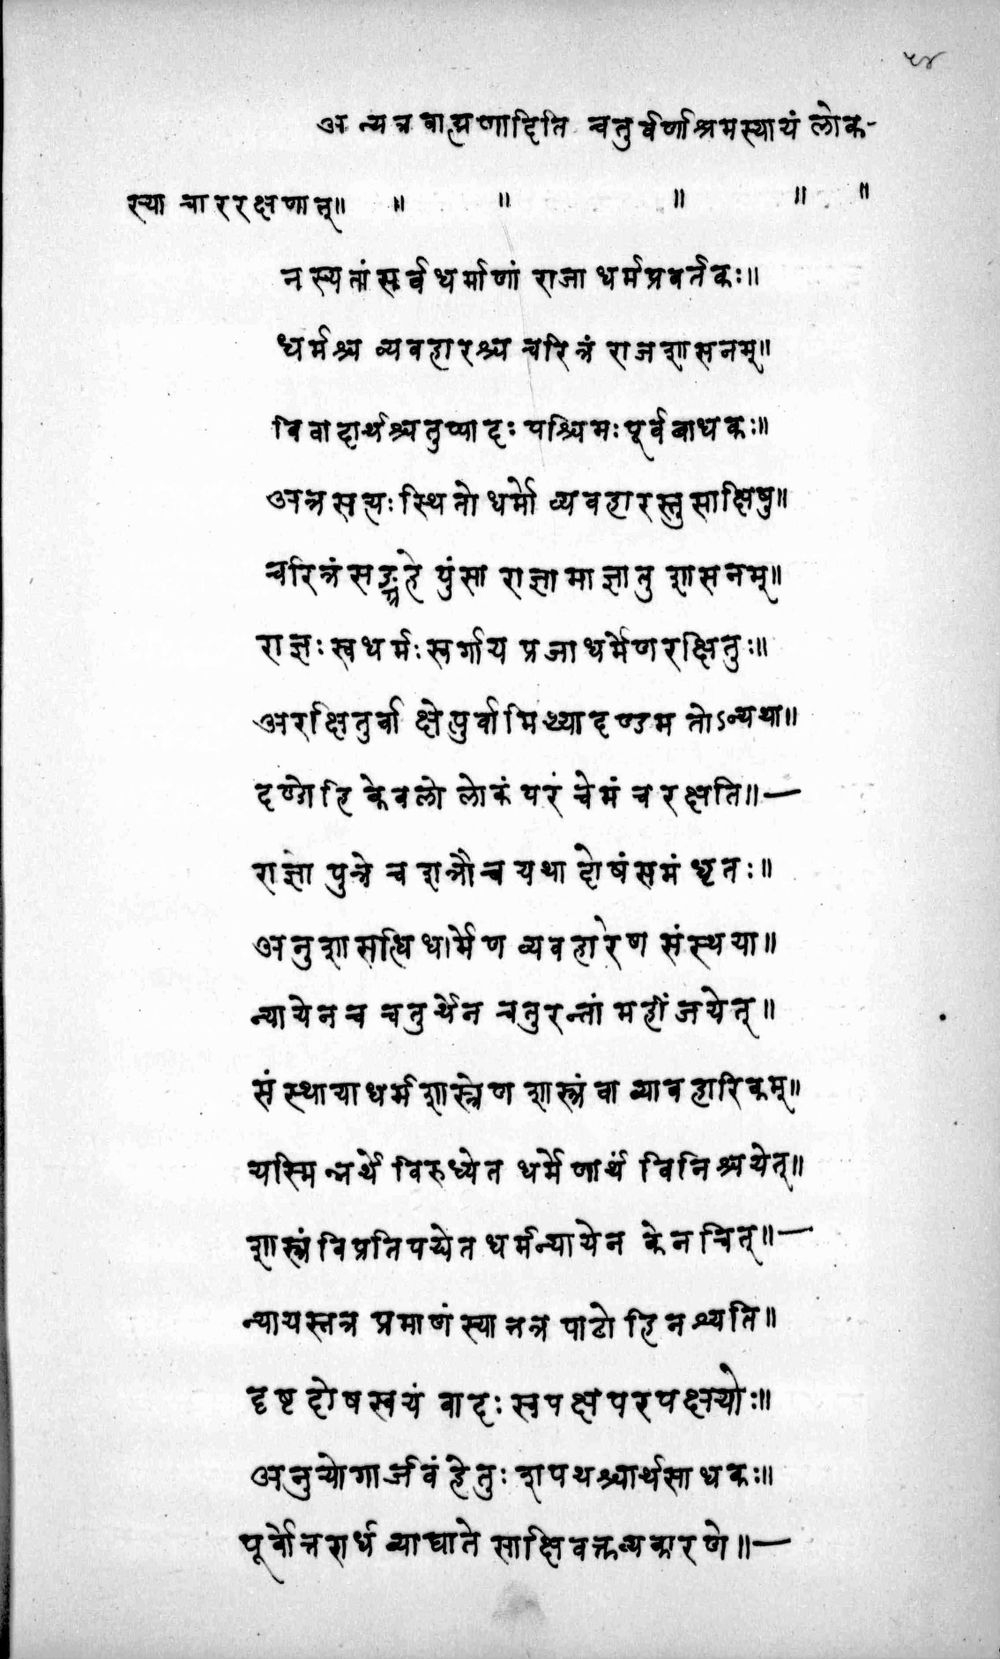 ५४
अन्यत्र वा ह्मणादिति चतुर्वर्णाश्रमस्यायं लोक-
स्या चाररक्षणात्॥ ॥ ॥ ॥ ॥ ॥
नस्यतां सर्वधर्माणां राजा धर्मप्रवर्तकः॥
धर्मश्च व्यवहारश्च चरित्रं राजशासनम्॥
विवादार्थश्चतुष्पादः पश्चिमः पूर्वबाधकः॥
अत्रसत्यः स्थितो धर्मो व्यवहारस्तु साक्षिषु॥
चरित्रं सङ्ग्रहे पुंसा राज्ञामाज्ञातु शासनम्॥
राज्ञः स्वधर्मः स्वर्गाय प्रजाधर्मेणरक्षितुः॥
अरक्षितुर्वा क्षेप्तुर्वा मिथ्यादण्डमतोऽन्यथा॥
दण्डोहि केवलो लोकं परं चेमं च रक्षति॥—
राज्ञो पुत्रे च शत्रौ च यथा दोषं समं धृतः॥
अनुशासद्धि धर्मेण व्यवहारेण संस्थया॥
न्यायेन च चतुर्थेन चतुरन्तां महीं जयेत्॥
संस्थायाधर्मशास्त्रेण शास्त्रं वा व्यावहारिकम्॥
यस्मिन्नर्थे विरुध्येत धर्मेणार्थं विनिश्चयेत्॥
शास्त्रं विप्रतिपद्येत धर्मन्यायेन केनचित्॥—
न्यायस्तत्र प्रमाणं स्यानत्र पाठो हि नश्यति॥
दृष्टदोषस्वयं वादः स्वपक्षपरपक्षयोः॥
अनुयोगार्जवं हेतुः शपथश्चार्थसाधकः॥
पूर्वोत्तरार्धव्याघाते साक्षिवक्तव्यकारणे॥—